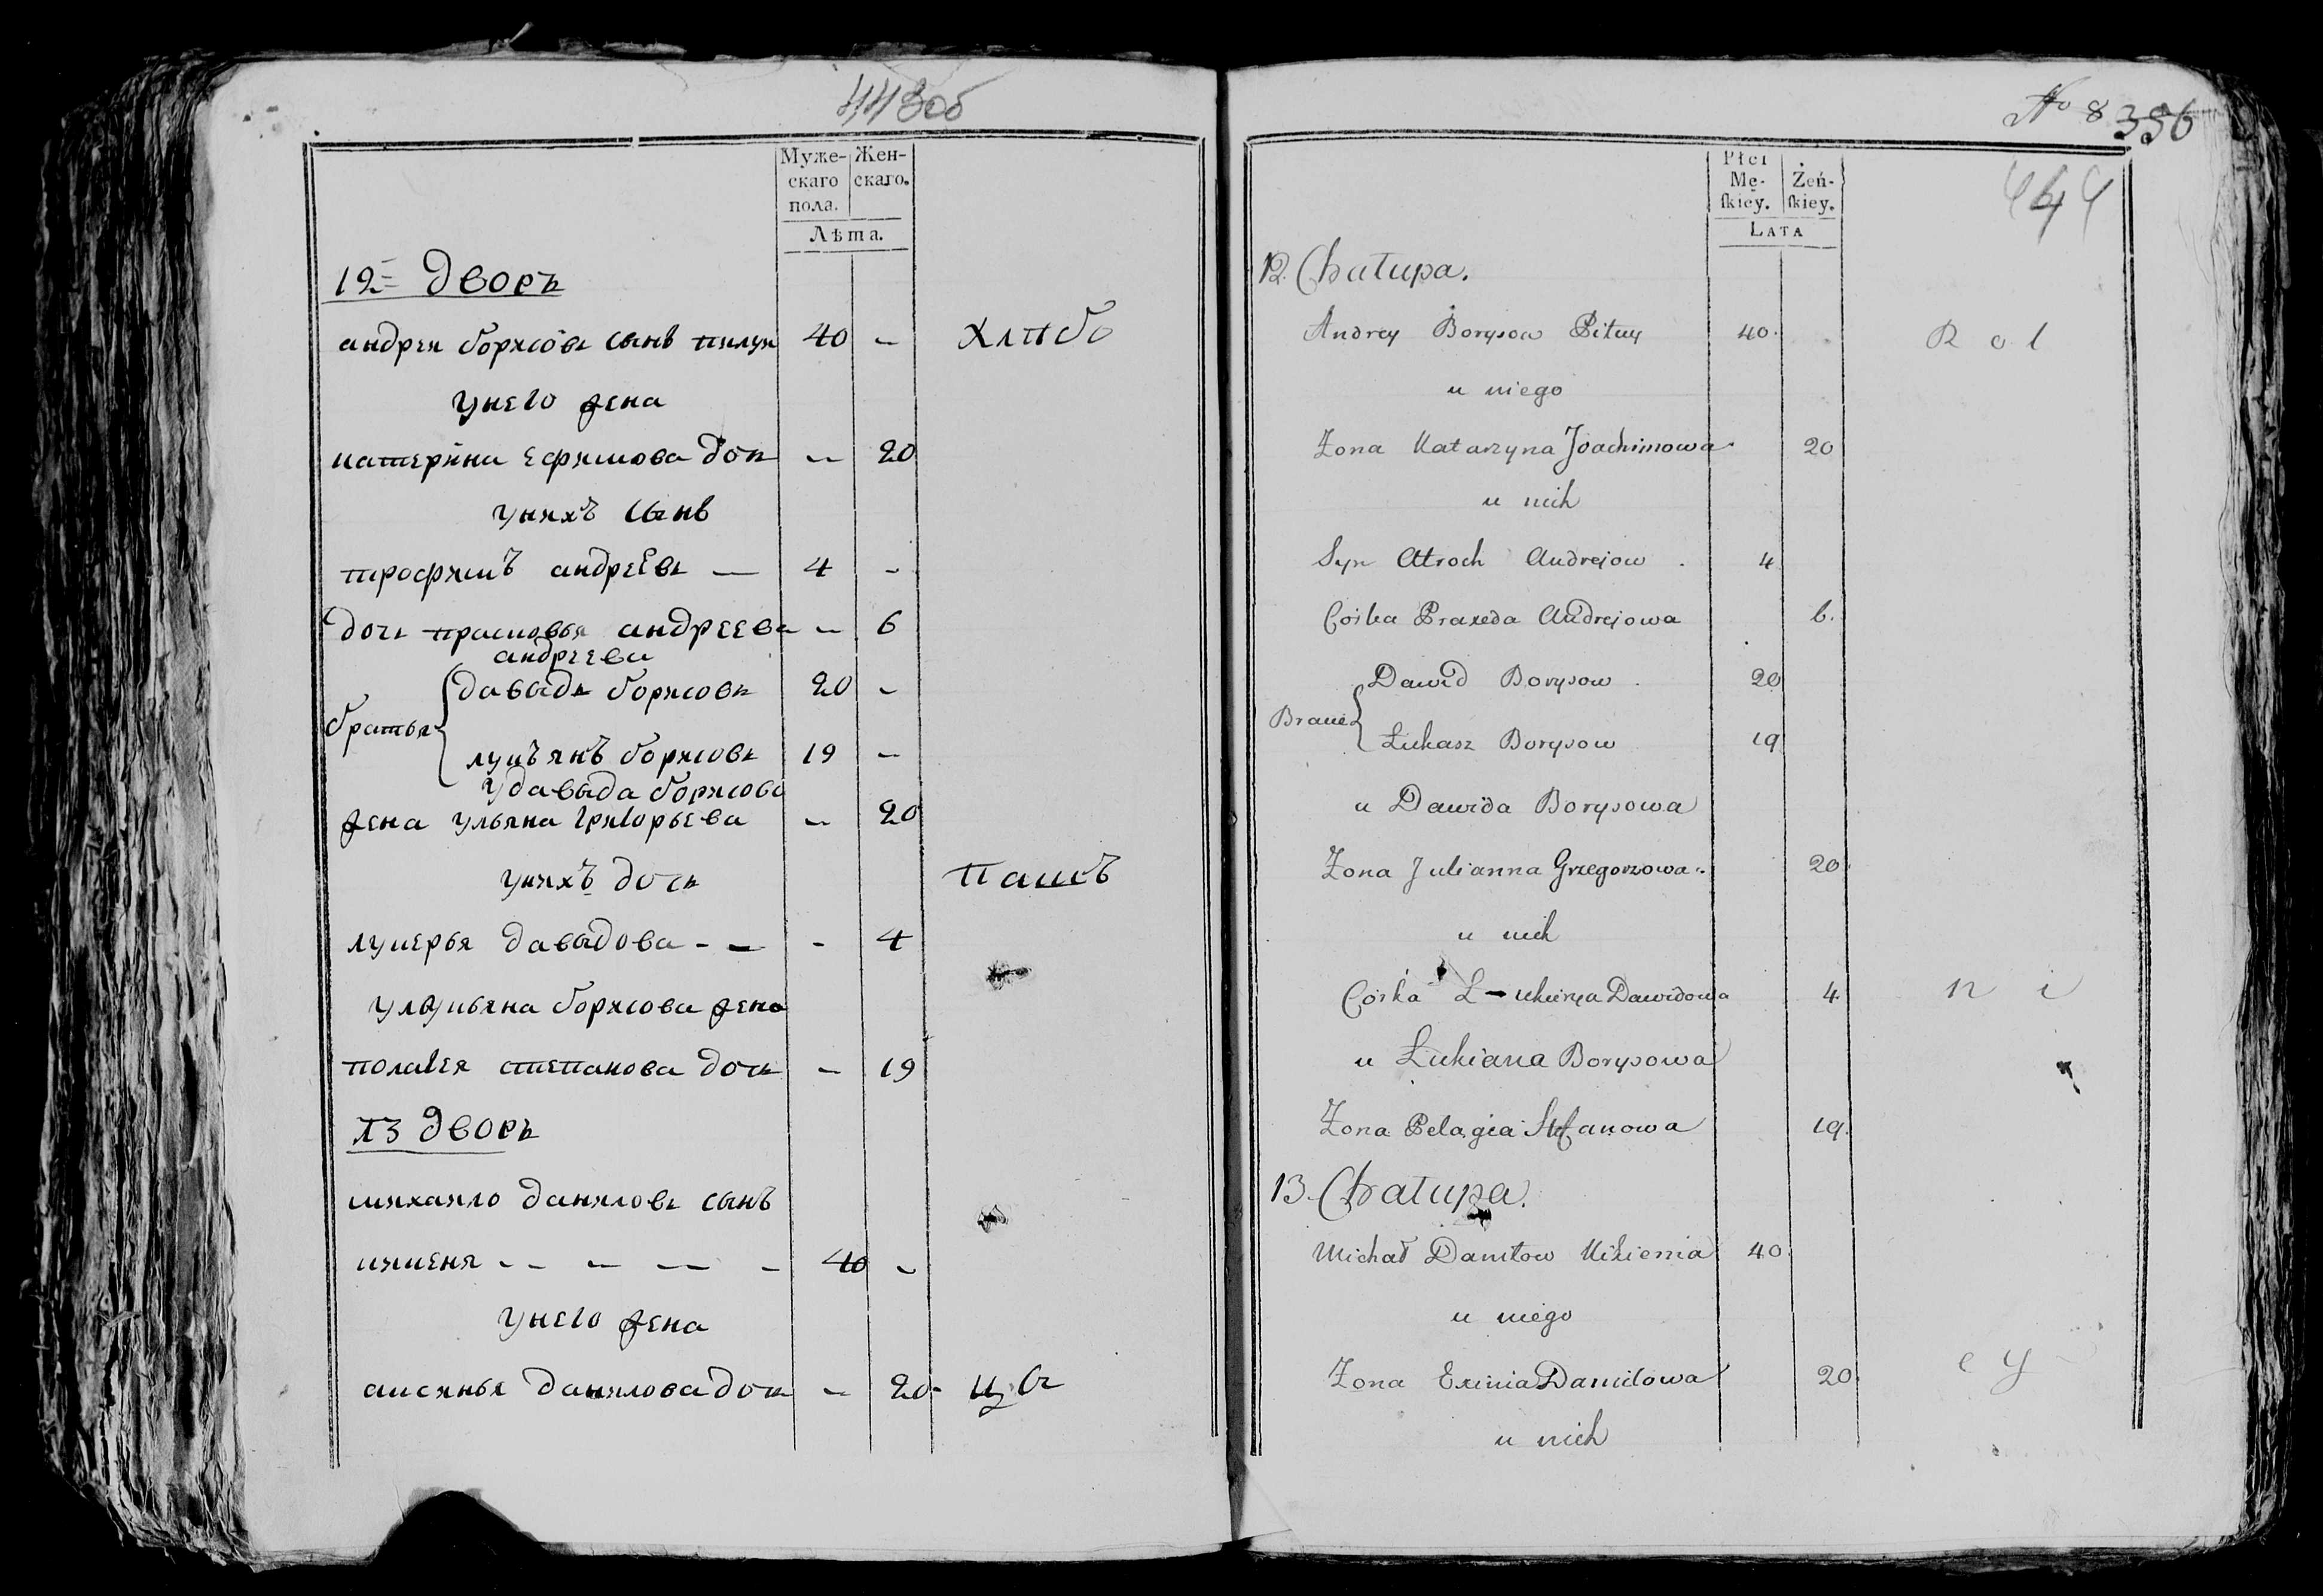 443об
Муже- Жен-
скаго скаго.
пола.
Лѣта.
12 = дворъ
андрей борисовъ сынъ пилуй 40 - хлѣбо
у него жена
катерина ефимова дочь - 20
у нихъ сынъ
трофимъ андреевъ — 4 -
дочь прасковья андреева - 6
андреева
братья { давыдъ борисовъ 20 -
лукъянъ борисовъ 19 -
у давыда борисова
жена ульяна григорьева - 20
у нихъ дочь пашъ
лукерья давыдова - - - 4
у лукьяна борисова жена
полагея степанова дочь - 19
13 дворъ
михайло даниловъ сынъ
кикеня - - - - - 40 -
у него жена
аксинья данилова дочь - 20 - цы
No 8 356
444
Płci
Mę- Żeń-
ſkiey. ſkiey.
LATA
12. Chałupa.
Andrey Borysow Piłuy 40. Rol
u niego
Żona Katarzyna Joachimowa 20
u nich
Syn Atroch Andrejow . 4
Corka Praxeda Andrejowa 6.
Dawid Borysow . 20
Bracie {
Łukasz Borysow 19
u Dawida Borysowa
Żona Julianna Grzegorzowa . 20
u nich
Corka Ł-ukierya Dawidowa 4. ni
u Łukiana Borysowa
Żona Pelagia Stefanowa 19.
13. Chałupa.
Michał Daniłow Kikienia 40
u niego
Żona Exinia Daniłowa 20. cy
u nich